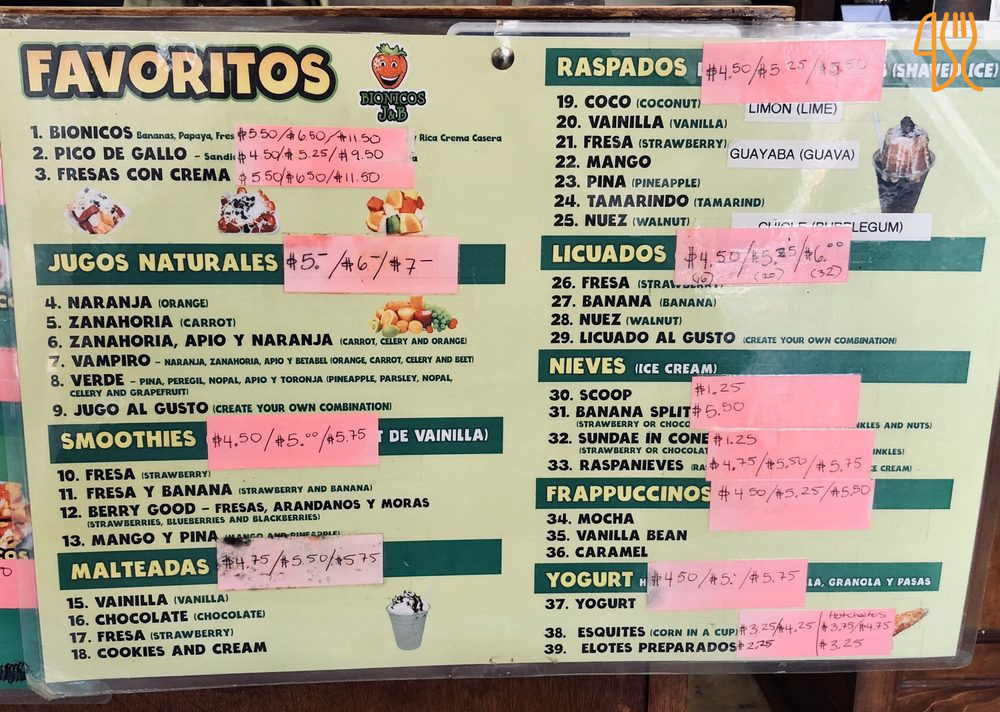 FAVORITOS
BIONICOS
J&B
1. BIONICOS Bananas, Papaya, Fres $5.50/$6.50/$11.50 Rica Crema Casera
2. PICO DE GALLO - Sandia $4.50/$5.25/$9.50
3. FRESAS CON CREMA $5.50/$6.50/$11.50
JUGOS NATURALES $5.-/$6-/$7-
4. NARANJA (ORANGE)
5. ZANAHORIA (CARROT)
6. ZANAHORIA, APIO Y NARANJA (CARROT, CELERY AND ORANGE)
7. VAMPIRO - NARANJA, ZANAHORIA, APIO Y BETABEL (ORANGE, CARROT, CELERY AND BEET)
8. VERDE - PINA, PEREGIL, NOPAL, APIO Y TORONJA (PINEAPPLE, PARSLEY, NOPAL,
CELERY AND GRAPEFRUIT)
9. JUGO AL GUSTO (CREATE YOUR OWN COMBINATION)
SMOOTHIES $4.50/$5.00/$5.75 T DE VAINILLA)
10. FRESA (STRAWBERRY)
11. FRESA Y BANANA (STRAWBERRY AND BANANA)
12. BERRY GOOD - FRESAS, ARANDANOS Y MORAS
(STRAWBERRIES, BLUEBERRIES AND BLACKBERRIES)
13. MANGO Y PINA (MANGO AND PINEAPPLE)
MALTEADAS $4.75/$5.50/$5.75
15. VAINILLA (VANILLA)
16. CHOCOLATE (CHOCOLATE)
17. FRESA (STRAWBERRY)
18. COOKIES AND CREAM
RASPADOS $4.50/$5.25/$5.50 (SHAVED ICE)
19. COCO (COCONUT) LIMON (LIME)
20. VAINILLA (VANILLA)
21. FRESA (STRAWBERRY) GUAYABA (GUAVA)
22. MANGO
23. PINA (PINEAPPLE)
24. TAMARINDO (TAMARIND)
25. NUEZ (WALNUT) CHICLE (BUBBLEGUM)
LICUADOS $4.50/$5.25/$6.00
(16) (20) (32)
26. FRESA (STRAWBERRY)
27. BANANA (BANANA)
28. NUEZ (WALNUT)
29. LICUADO AL GUSTO (CREATE YOUR OWN COMBINATION)
NIEVES (ICE CREAM)
30. SCOOP $1.25
31. BANANA SPLIT $5.50
(STRAWBERRY OR CHOCO NKLES AND NUTS)
32. SUNDAE IN CONE $1.25
(STRAWBERRY OR CHOCOLAT INKLES)
33. RASPANIEVES (RA $4.75/$5.50/$5.75 CE CREAM)
FRAPPUCCINOS $4.50/$5.25/$5.50
34. MOCHA
35. VANILLA BEAN
36. CARAMEL
YOGURT $4.50/$5.-/$5.75 LA, GRANOLA Y PASAS
37. YOGURT
Hotcheetos
38. ESQUITES (CORN IN A CUP) $3.25/$4.25 $3.75/$4.75
39. ELOTES PREPARADOS $2.25 $3.25